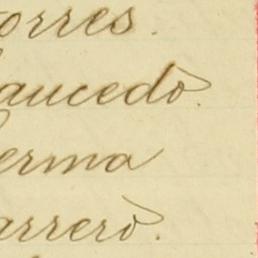 orres.
aucedo.
erma
arrero.